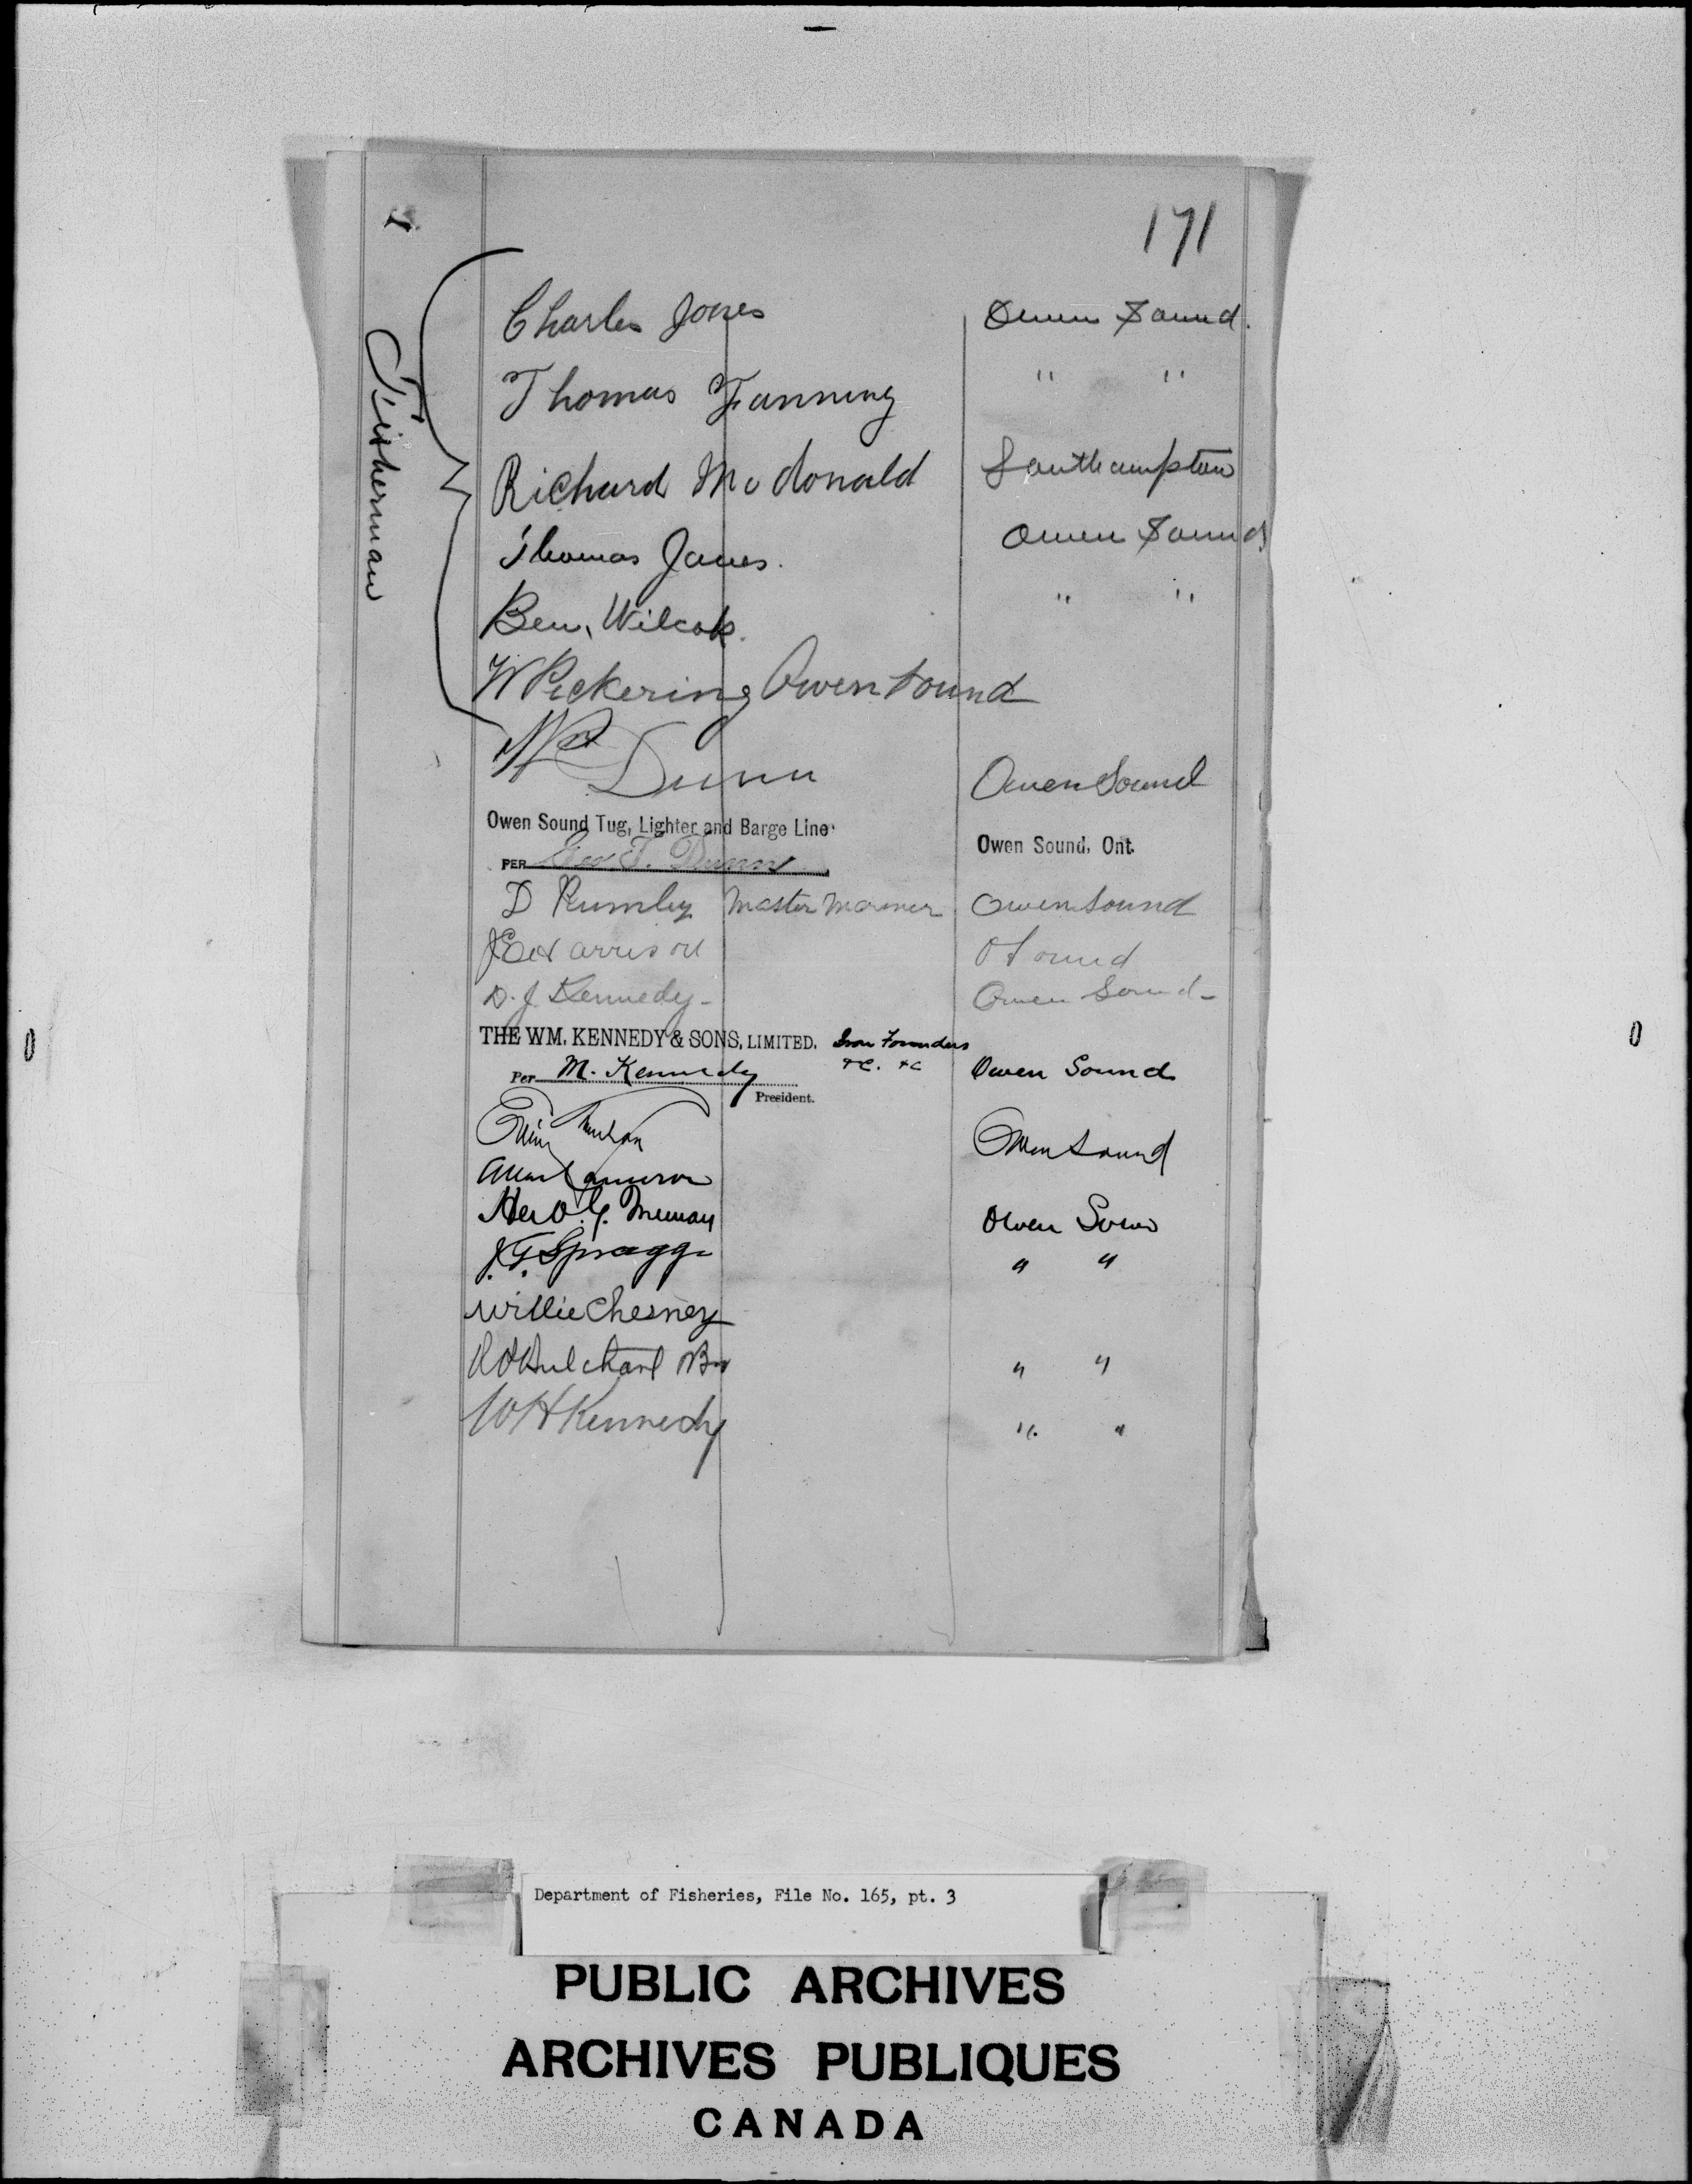 171
Fisherman
Charles Jones Owen Sound.
Thomas Fanning " "
Richard McDonald Southampton
Thomas Jones. Owen Sound
Ben. Wilcox. " "
W Pickering Owen Sound
Dunn Owen Sound
Owen Sound Tug, Lighter and Barge Line Owen Sound, Ont.
PER Geo. T. Dunn
D Rumley Master Mariner Owen Sound
J E Harrison O Sound
D. J. Kennedy - Owen Sound -
THE WM. KENNEDY & SONS, LIMITED. Iron Founders
Per M. Kennedy &C. &C Owen Sound
President.
Owen Sound
Allan Cameron
Owen Soun
J. G. Spragge " "
Willie Chesney
" "
W H Kennedy " "
Department of Fisheries, File No. 165, pt. 3
PUBLIC ARCHIVES
ARCHIVES PUBLIQUES
CANADA